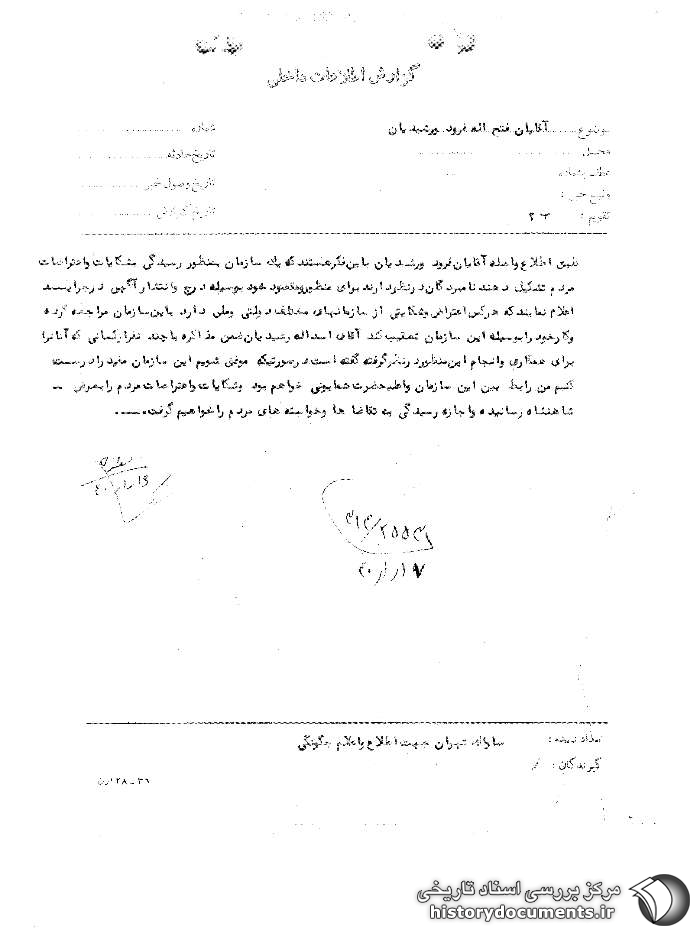 گزارش اطلاعات داخلی
موضوع ...... آقایان فتح اله فرود ورشیدیان
شماره
محل
تاریخ حادثه
عطف بشماره
تاریخ وصول خبر
منبع خبر :
تاریخ گزارش
تقویم :
طبق اطلاع واصله آقایان فرود ورشیدیان باین فکر هستند که یک سازمان بمنظور رسیدگی بشکایات واعتراضات
مردم تشکیل دهند نامبردگان در نظر دارند برای منظور ومقصود خود بوسیله درج وانتشار آگهی در جراید
اعلام نمایند که هرکس اعتراض وشکایتی از سازمانهای مختلف دولتی وملی دارد باین سازمان مراجعه کرده
وکار خود را بوسیله این سازمان تعقیب کند آقای اسداله رشیدیان ضمن مذاکره با چند نفر از کسانی که آنانرا
برای همکاری وانجام این منظور در نظر گرفته گفته است در صورتیکه موفق شویم این سازمان مفید را درست
کنیم من رابط بین این سازمان واعلیحضرت همایونی خواهم بود وشکایات واعتراضات مردم را بعرض
شاهنشاه رسانیده واجازه رسیدگی به تقاضا ها وخواسته های مردم را خواهیم گرفت.
۳۱۲/۲۵۵۳
تعداد نسخه :
ساواک تهران جهت اطلاع واعلام چگونگی
گیرندگان :
۳۶ - ۲۸
مرکز بررسی اسناد تاریخی
historydocuments.ir